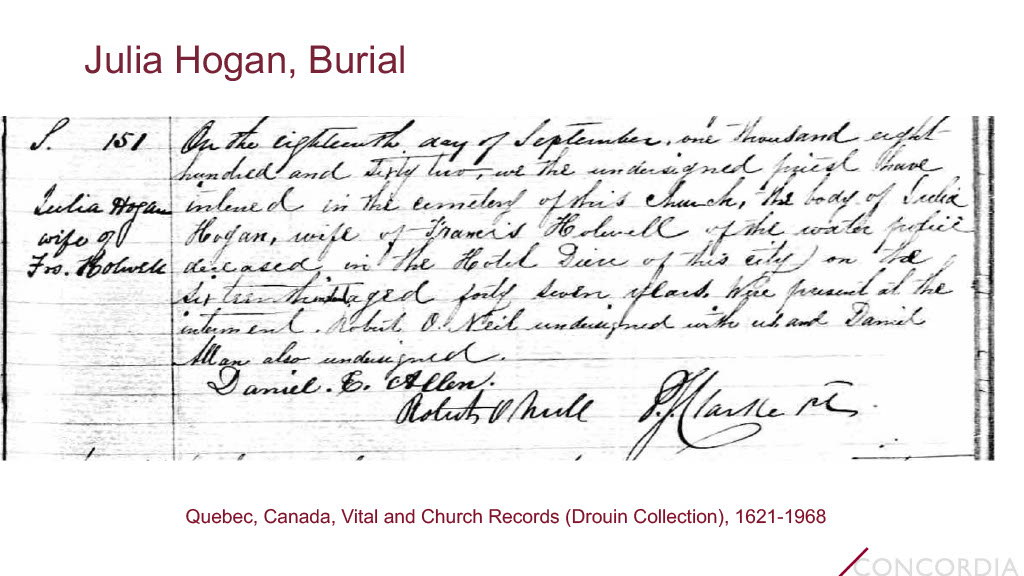 Julia Hogan, Burial
S. 151
Julia Hogan
wife of
Frs. Holwell
On the eighteenth day of September, one thousand eight
hundred and sixty two, we the undersigned priest have
interred in the cemetery of this church, the body of Julia
Hogan, wife of Francis Holwell of the water police
deceased in the Hotel Dieu of this city on the
sixteenth aged forty seven years. Were present at the
interment. Robert O'Neil undersigned with us and Daniel
Allan also undersigned.
Daniel. E. Allen.
Robert O'Neill P.J. Clarke
Quebec, Canada, Vital and Church Records (Drouin Collection), 1621-1968
CONCORDIA